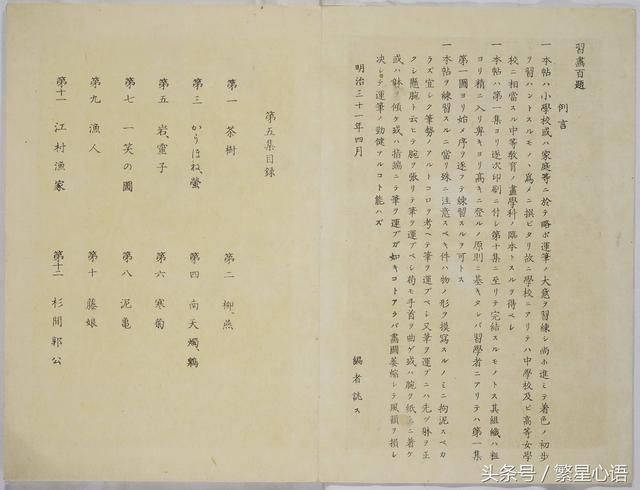 習畫百題
例言
一本帖ハ小學校或ハ家庭等ニ於テ略ボ運筆ノ大意ヲ習練シ尚ホ進ミテ着色ノ初歩
ヲ習ハントスルモノヽ爲メニ撰ビタリ故ニ學校ニアリテハ中學校及ビ高等女學
校ニ相當スル中等教育ノ畫學科ノ臨本トスルヲ得ベシ
一本帖ハ第一集ヨリ逐次印刷ニ付シ第十集ニ至リテ完結スルモノトス其組織ハ粗
ヨリ精ニ入リ卑キヨリ高キニ登ルノ原則ニ基キタレバ習學者ニアリテハ第一集
第一圖ヨリ始メ序ヲ逐フテ練習スルヲ可トス
一本帖ヲ練習スルニ當リ殊ニ注意スベキ件ハ物ノ形ヲ摸寫スルノミニ拘泥スベカ
ラズ宜シク筆勢ノアルトコロヲ考ヘテ筆ヲ運ブベシ又筆ヲ運ブニハ先ヅ躰ヲ正
クシ懸腕ト云ヒテ腕ヲ張リテ筆ヲ運ブベシ苟モ手首ヲ曲ゲ或ハ腕ヲ紙上ニ着ケ
或ハ躰ヲ傾ケ或ハ指端ニテ筆ヲ運ブガ如キコトアラバ畫圖萎縮シテ風韻ヲ損シ
决シテ運筆ノ勁健アルコト能ハズ
明治三十一年四月
編者誌ス
第五集目録
第一 茶樹
第二 柳、燕
第三 かうほね、螢
第四 南天燭、鶫
第五 岩、靈子
第六 寒菊
第七 一笑の圖
第八 泥亀
第九 漁人
第十 藤娘
第十一 江村漁家
第十二 杉間郭公
头条号／繁星心语